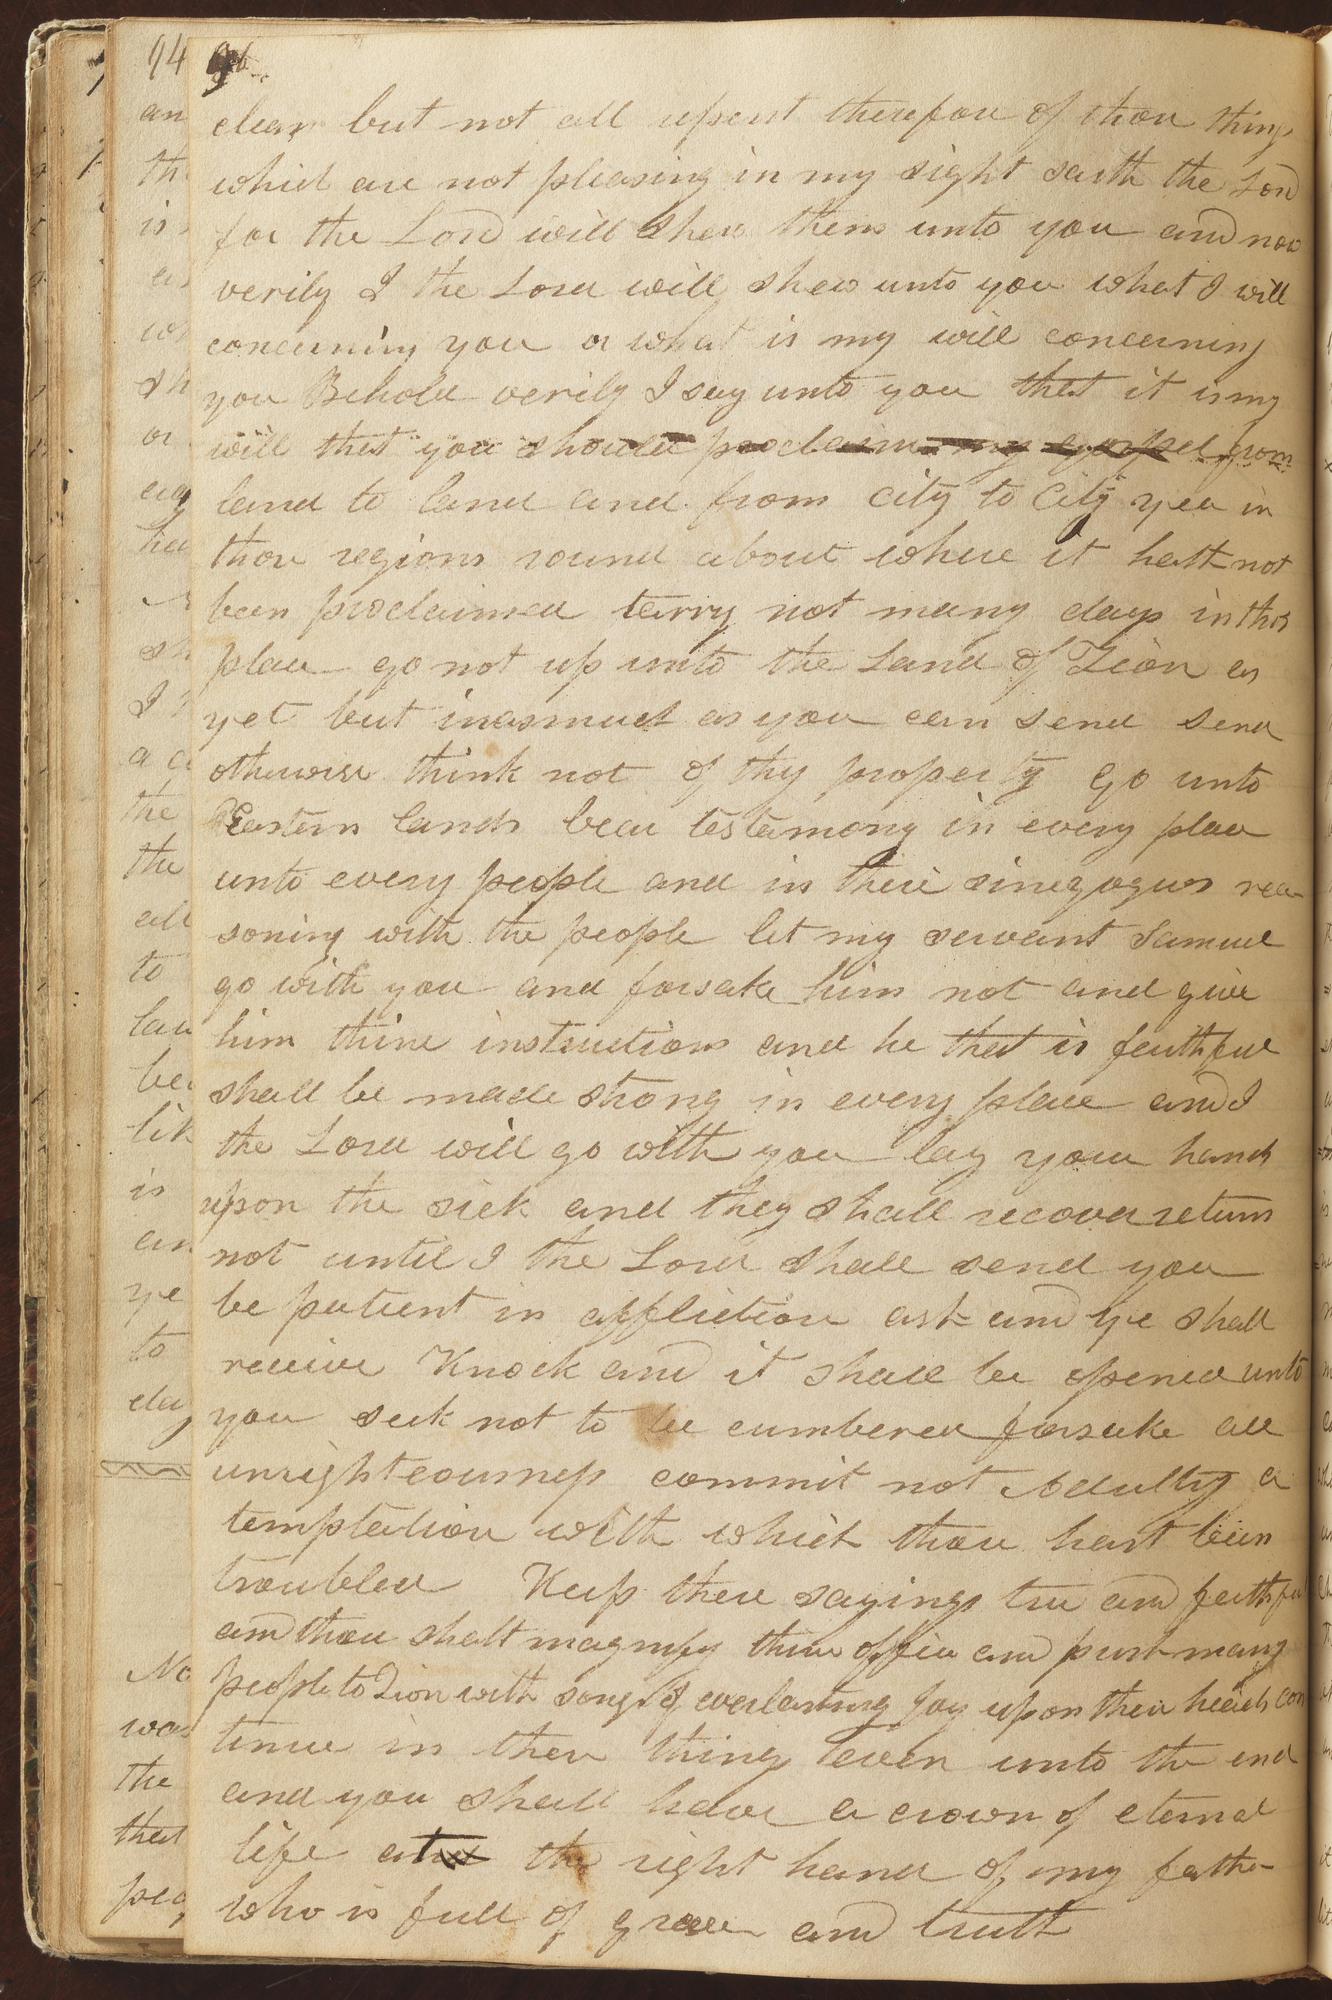 94 96
clean but not all repent therefore of those things
which are not pleasing in my sight saith the Lord
for the Lord will shew them unto you and now
verily I the Lord will shew unto you what I will
concerning you or what is my will concerning
you Behold verily I say unto you that it is my
will that you should proclaim my gospel from
land to land and from city to City yea in
those regions round about where it hath not
been proclaimed tarry not many days in this
place go not up unto the Land of Zion as
yet but inasmuch as you can send send
otherwise think not of thy property Go unto
Eastern lands bear testamony in every place
unto every people and in their sinegogues rea
soning with the people let my servant Samuel
go with you and forsake him not and give
him thine instructions and he that is faithful
shall be made strong in every place and I
the Lord will go with you lay your hands
upon the sick and they shall recover return
not until I the Lord shall send you
be patient in affliction ask and ye shall
receive Knock and it shall be opened unto
you seek not to be cumbered forsake all
unrighteousness commit not Adultry a
temptation with which thou hast been
troubled Keep these sayings true and faithful
and thou shalt magnify thine office and push many
people to Zion with songs of everlasting Joy upon their heads con
tinue in these things even unto the end
and you shall have a crown of eternal
life at the right hand of my father
who is full of grace and truth